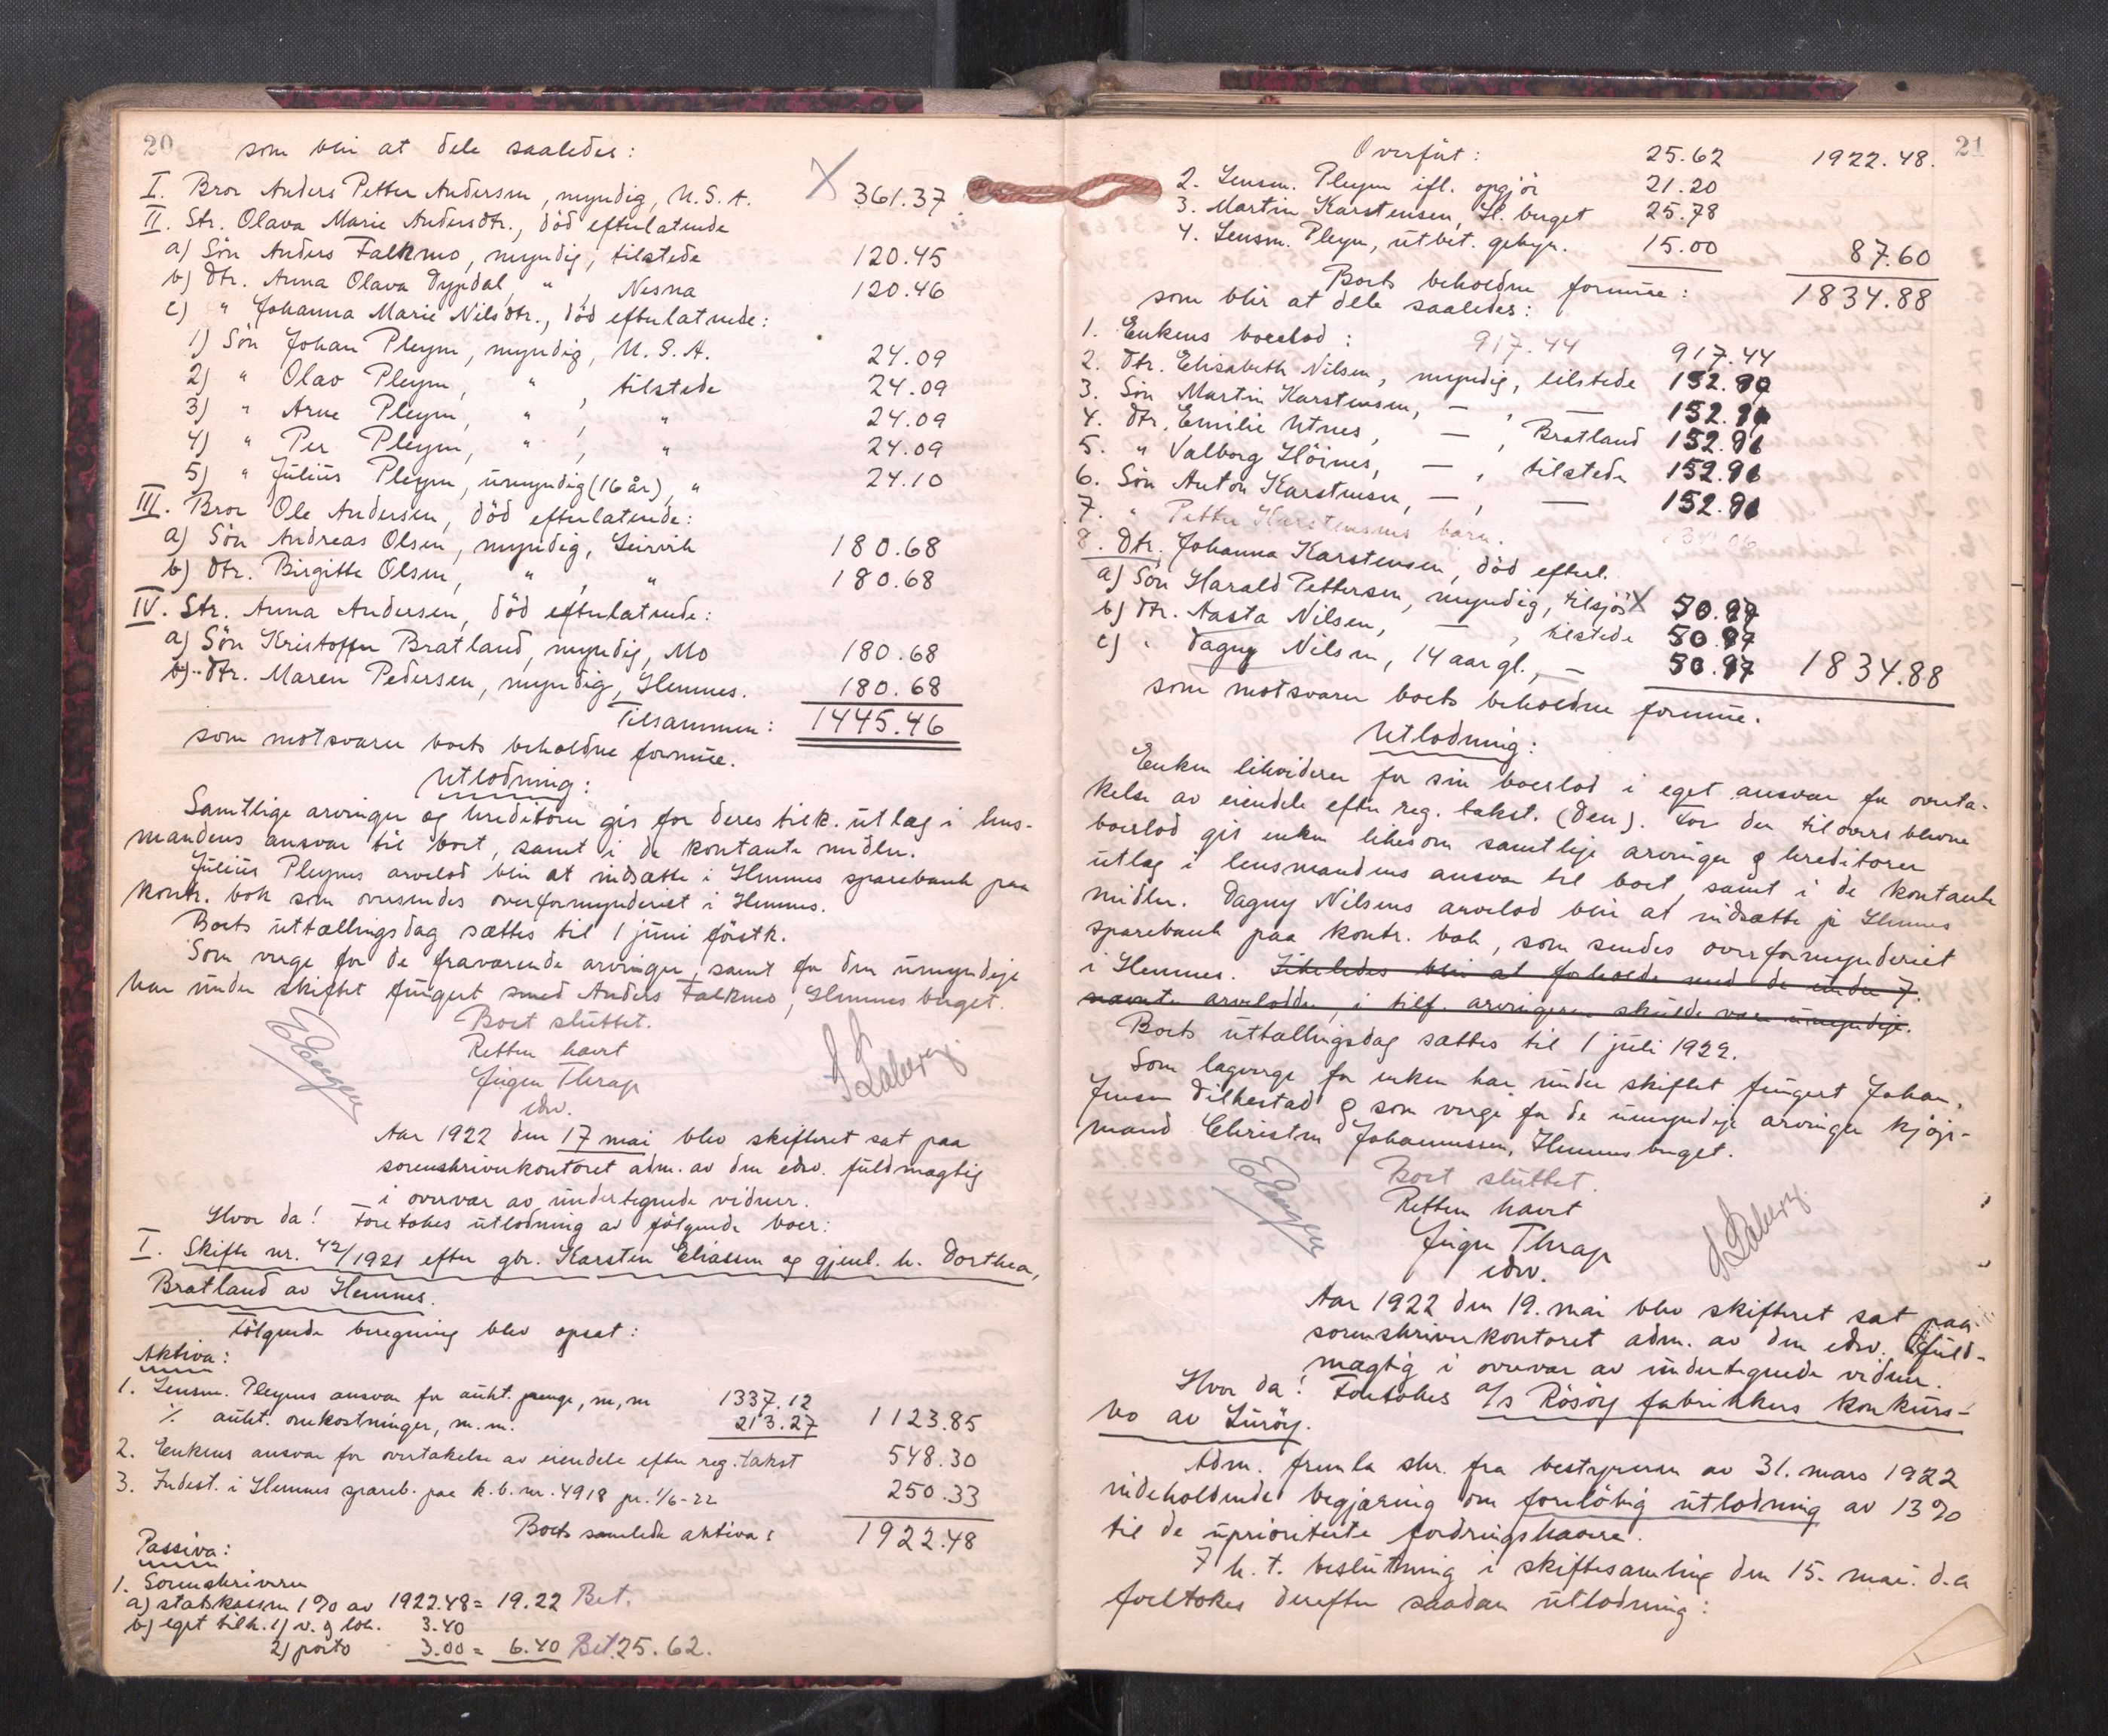 20
som blir at dele saaledes:
I. Bror Anders Petter Andersen, myndig, U.S.A. X 361.37
II. Str. Olava Marie Andersdtr., död efterlatende
a) Sön Anders Falkmo, myndig, tilstede 120.45
b) Dtr. Anna Olava Dypdal, " , Nesna 120.46
c) " Johanna Marie Nilsdtr., död efterlatende:
1) Sön Johan Pleym, myndig, U.S.A. 24.09
2) " Olav Pleym, " , tilstede 24.09
3) " Arne Pleym, " , " 24.09
4) " Per Pleym, " , " 24.09
5) " Julius Pleym, umyndig (16 år), " 24.10
III. Bror Ole Andersen, död efterlatende:
a) Sön Andreas Olsen, myndig, Leirvik 180.68
b) Dtr. Birgitte Olsen, " , " 180.68
IV. Str. Anna Andersen, död efterlatende:
a) Sön Kristoffer Bratland, myndig, Mo 180.68
b) Dtr. Maren Pedersen, myndig, Hemnes. 180.68
Tilsammen: 1445.46
som motsvarer boets beholdne formue.
Utlodning:
Samtlige arvinger og kreditorer gis for deres tilk. utlæg i lens-
mandens ansvar til boet, samt i de kontante midler.
Julius Pleyms arvelod blir at indsætte i Hemnes sparebank paa
kontr. bok som oversendes overformynderiet i Hemnes.
Boets utlællingsdag sættes til 1 juni förstk.
Som verge for de fraværende arvinger, samt for den umyndige
har under skiftet fungert smed Anders Falkmo, Hemnesberget.
Boet sluttet.
Retten hævet
Jürgen Thrap
edsv.
Aar 1922 den 17 mai blev skifteret sat paa
sorenskriverkontoret adm. av den edsv. fuldmægtig
i overvær av undertegnede vidner.
Hvor da! Foretokes utlodning av fölgende boer:
I. Skifte nr. 42/1921 efter gbr. Karsten Eliassen og gjenl. h. Dorthea,
Bratland av Hemnes.
Fölgende beregning blev opsat:
Aktiva:
1. Lensm. Pleyms ansvar for aukt. penge, m, m 1337.12
% aukt. omkostninger, m. m. 213.27 1123.85
2. Enkens ansvar for overtakelse av eiendele efter reg. takst 548.30
3. Indest. i Hemnes spareb. paa k.b. nr. 4918 pr. 1/6-22 250.33
Boets samlede aktiva: 1922.48
Passiva:
1. Sorenskriveren
a) statskassen 1% av 1922.48 = 19.22 Bet.
b) eget tilk. 1) v. og lok. 3.40
2) porto 3.00 = 6.40 Bet 25.62.
21
Overfört: 25.62 1922.48.
2. Lensm. Pleym ifl. opgjör 21.20
3. Martin Karstensen, H. berget 25.78
4. Lensm. Pleym, utbet. gebyr. 15.00 87.60
Boets beholdne formue: 1834.88
som blir at dele saaledes:
1. Enkens boeslod: 917.44 917.44
2. Dtr. Elisabeth Nilsen, myndig, tilstede
3. Sön Martin Karstensen, — , —
4. Dtr. Emilie Utnes, — , Bratland
5. " Valborg Höines, — , tilstede
6. Sön Anton Karstensen, — , —
7. " Petter Karstensens barn.
8. Dtr. Johanna Karstensen, död efterl.
a) Sön Harald Pettersen, myndig, tilsjös X
b) Dtr. Aasta Nilsen, — , tilstede
c) " Dagny Nilsen, 14 aar gl., — 1834.88
som motsvarer boets beholdne formue.
Utlodning:
Enken likviderer for sin boeslod i eget ansvar for overta-
kelse av eiendele efter reg. takst. (Den). For den tilovers blevne
boeslod gis enken likesom samtlige arvinger og kreditorer
utlæg i lensmandens ansvar til boet, samt i de kontante
midler. Dagny Nilsens arvelod blir at indsætte på Hemnes
sparebank paa kontr. bok, som sendes overformynderiet
i Hemnes. Likeledes blir at forholde med de under 7.
nævnte arvelodder, i tilf. arvingerne skulde være umyndige.
Boets uttællingsdag sættes til 1 juli 1922.
Som lagverge for enken har under skiftet fungert Johan
Jensen Dilkestad og som verge for de umyndige arvinger kjöp-
mand Christen Johannessen, Hemnesberget.
Boet sluttet.
Retten hævet
Jürgen Thrap
edsv.
Aar 1922 den 19. mai blev skifteret sat paa
sorenskriverkontoret adm. av den edsv. fuld-
mægtig i overvær av undertegnede vidner.
Hvor da! Foretokes a/s Rösöy fabrikkers konkurs-
bo av Luröy.
Adm. fremla skr. fra bestyreren av 31. mars 1922
indeholdende begjæring om forelöbig utlodning av 13%
til de uprioriterte fordringshavere.
I h. t. beslutning i skiftesamling den 15. mai d.a
foretokes derefter saadan utlodning: